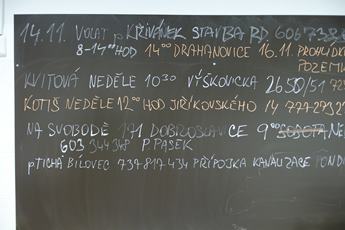 14.11. VOLAT p KŘIVÁNEK STAVBA RD 606738
8-14⁰⁰HOD 14⁰⁰ DRAHANOVICE 16.11. PROHLÍDK
POZEMK
KVITOVÁ NEDĚLE 10³⁰ VÝŠKOVICKA 2650/51
KOTIŠ NEDĚLE 12⁰⁰ HOD JIŘÍKOVSKÉHO 14
NA SVOBODĚ 171 DOBROSLAVICE 9⁰⁰ SOBOTA NE
603 344 348 P. PASEK
pTICHÁ BÍLOVEC 737817434 PŘÍPOJKA KANALIZACE